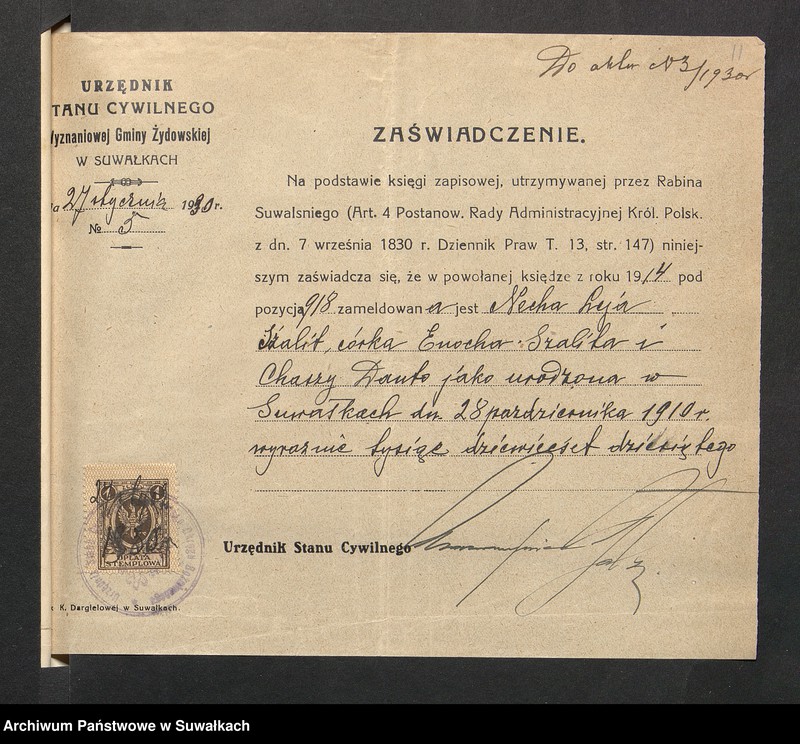 Do aktu № 3/1930r
URZĘDNIK
TANU CYWILNEGO
yznaniowej Gminy Żydowskiej
W SUWAŁKACH
a 27 stycznia 1930 r.
№ 5
ZAŚWIADCZENIE.
Na podstawie księgi zapisowej, utrzymywanej przez Rabina
Suwalsniego (Art. 4 Postanow. Rady Administracyjnej Król. Polsk.
z dn. 7 września 1830 r. Dziennik Praw T. 13, str. 147) niniej-
szym zaświadcza się, że w powołanej księdze z roku 1914 pod
pozycją 918 zameldowana jest Necha Leja
Szalit, córka Enocha Szalita i
Chaszy Danto jako urodzona w
Suwałkach dn. 28 października 1910 r.
wyraźnie tysiąc dziewięćset dziesiątego
Urzędnik Stanu Cywilnego
1 1
OPŁATA
STEMPLOWA
K. Dargielowej w Suwałkach.
Archiwum Państwowe w Suwałkach